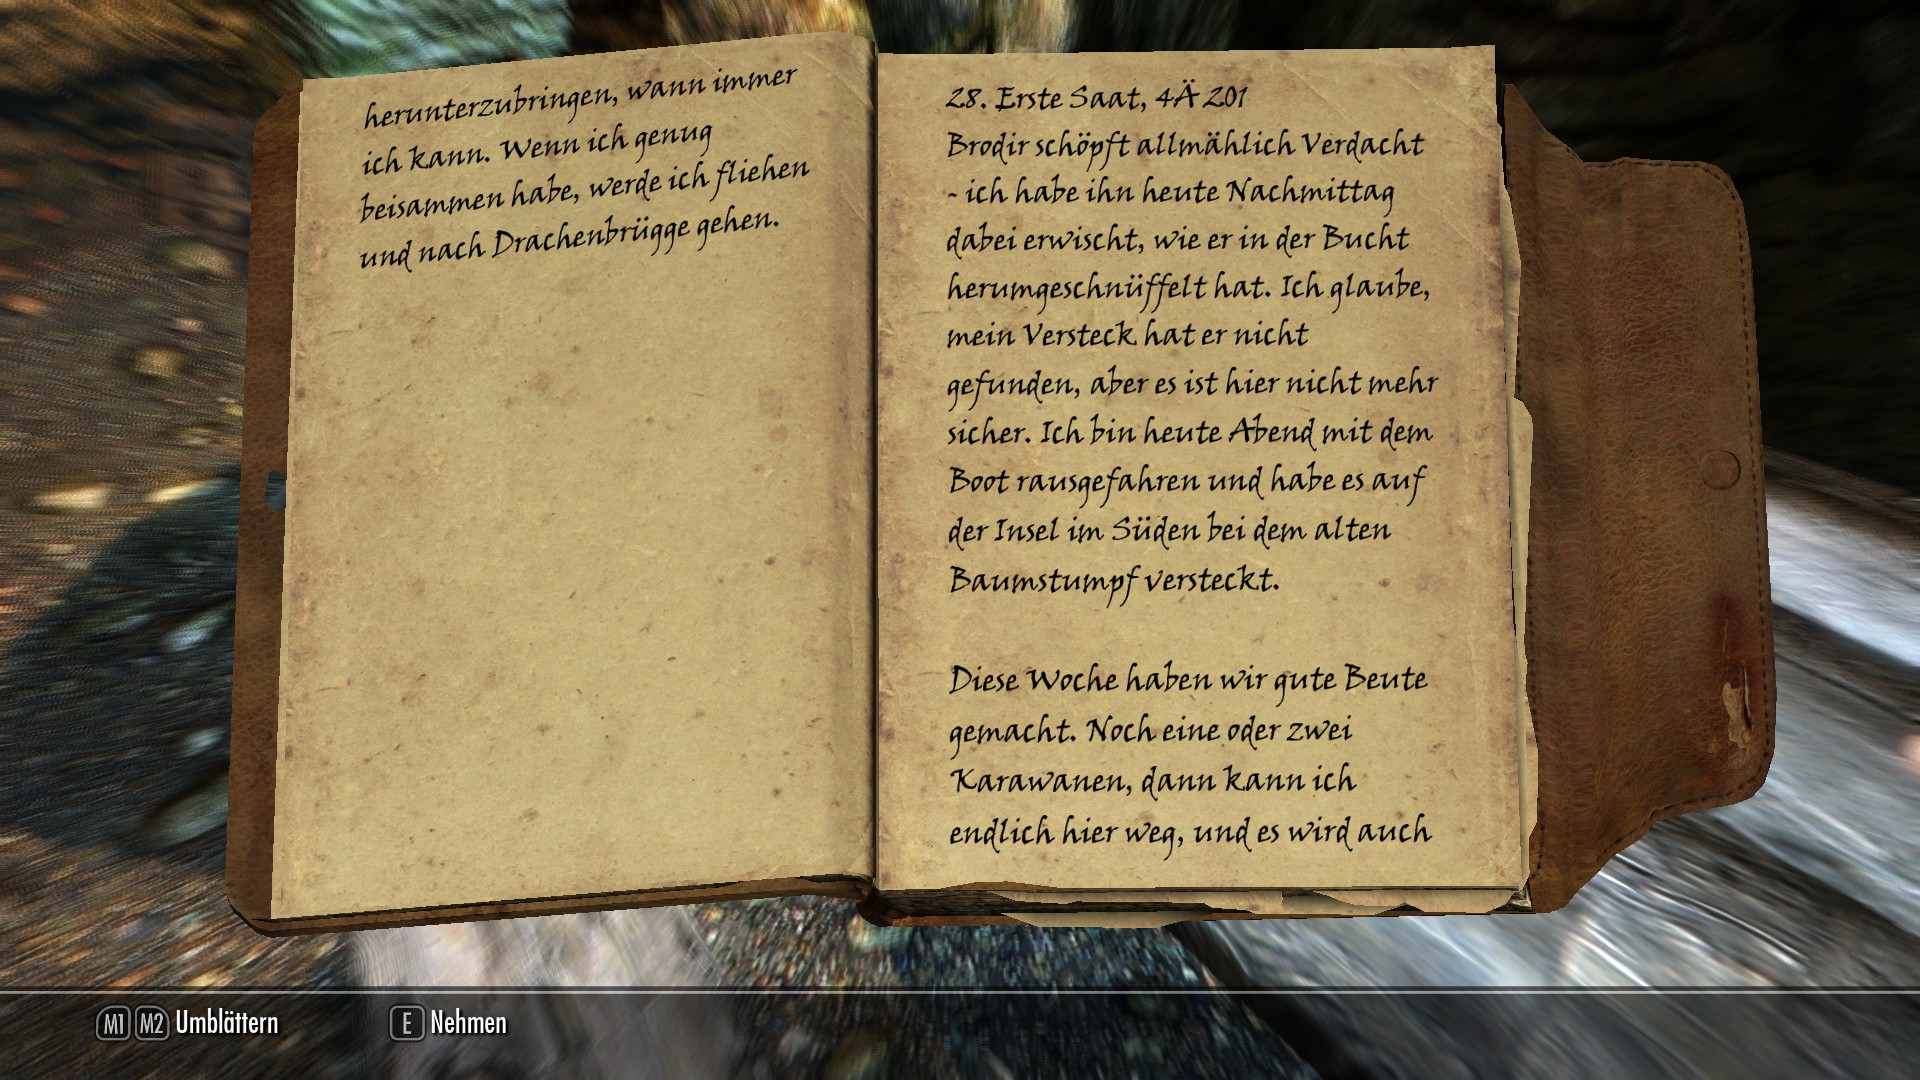 herunterzubringen, wann immer
ich kann. Wenn ich genug
beisammen habe, werde ich fliehen
und nach Drachenbrügge gehen.
28. Erste Saat, 4Ä 201
Brodir schöpft allmählich Verdacht
- ich habe ihn heute Nachmittag
dabei erwischt, wie er in der Bucht
herumgeschnüffelt hat. Ich glaube,
mein Versteck hat er nicht
gefunden, aber es ist hier nicht mehr
sicher. Ich bin heute Abend mit dem
Boot rausgefahren und habe es auf
der Insel im Süden bei dem alten
Baumstumpf versteckt.
Diese Woche haben wir gute Beute
gemacht. Noch eine oder zwei
Karawanen, dann kann ich
endlich hier weg, und es wird auch
M1 M2 Umblättern
E Nehmen